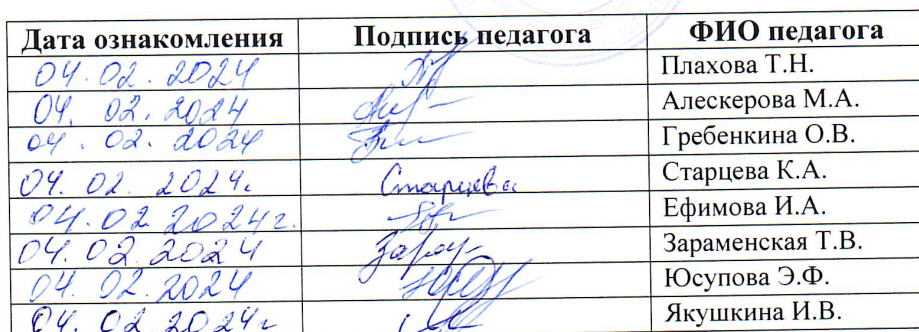 Дата ознакомления Подпись педагога ФИО педагога
04.02.2024 Плахова Т.Н.
04.02.2024 Алескерова М.А.
04.02.2024 Гребенкина О.В.
04.02.2024г. Старцева Старцева К.А.
04.02.2024г. Ефимова И.А.
04.02.2024 Зараменская Т.В.
04.02.2024 Юсупова Э.Ф.
04.02.2024г Якушкина И.В.